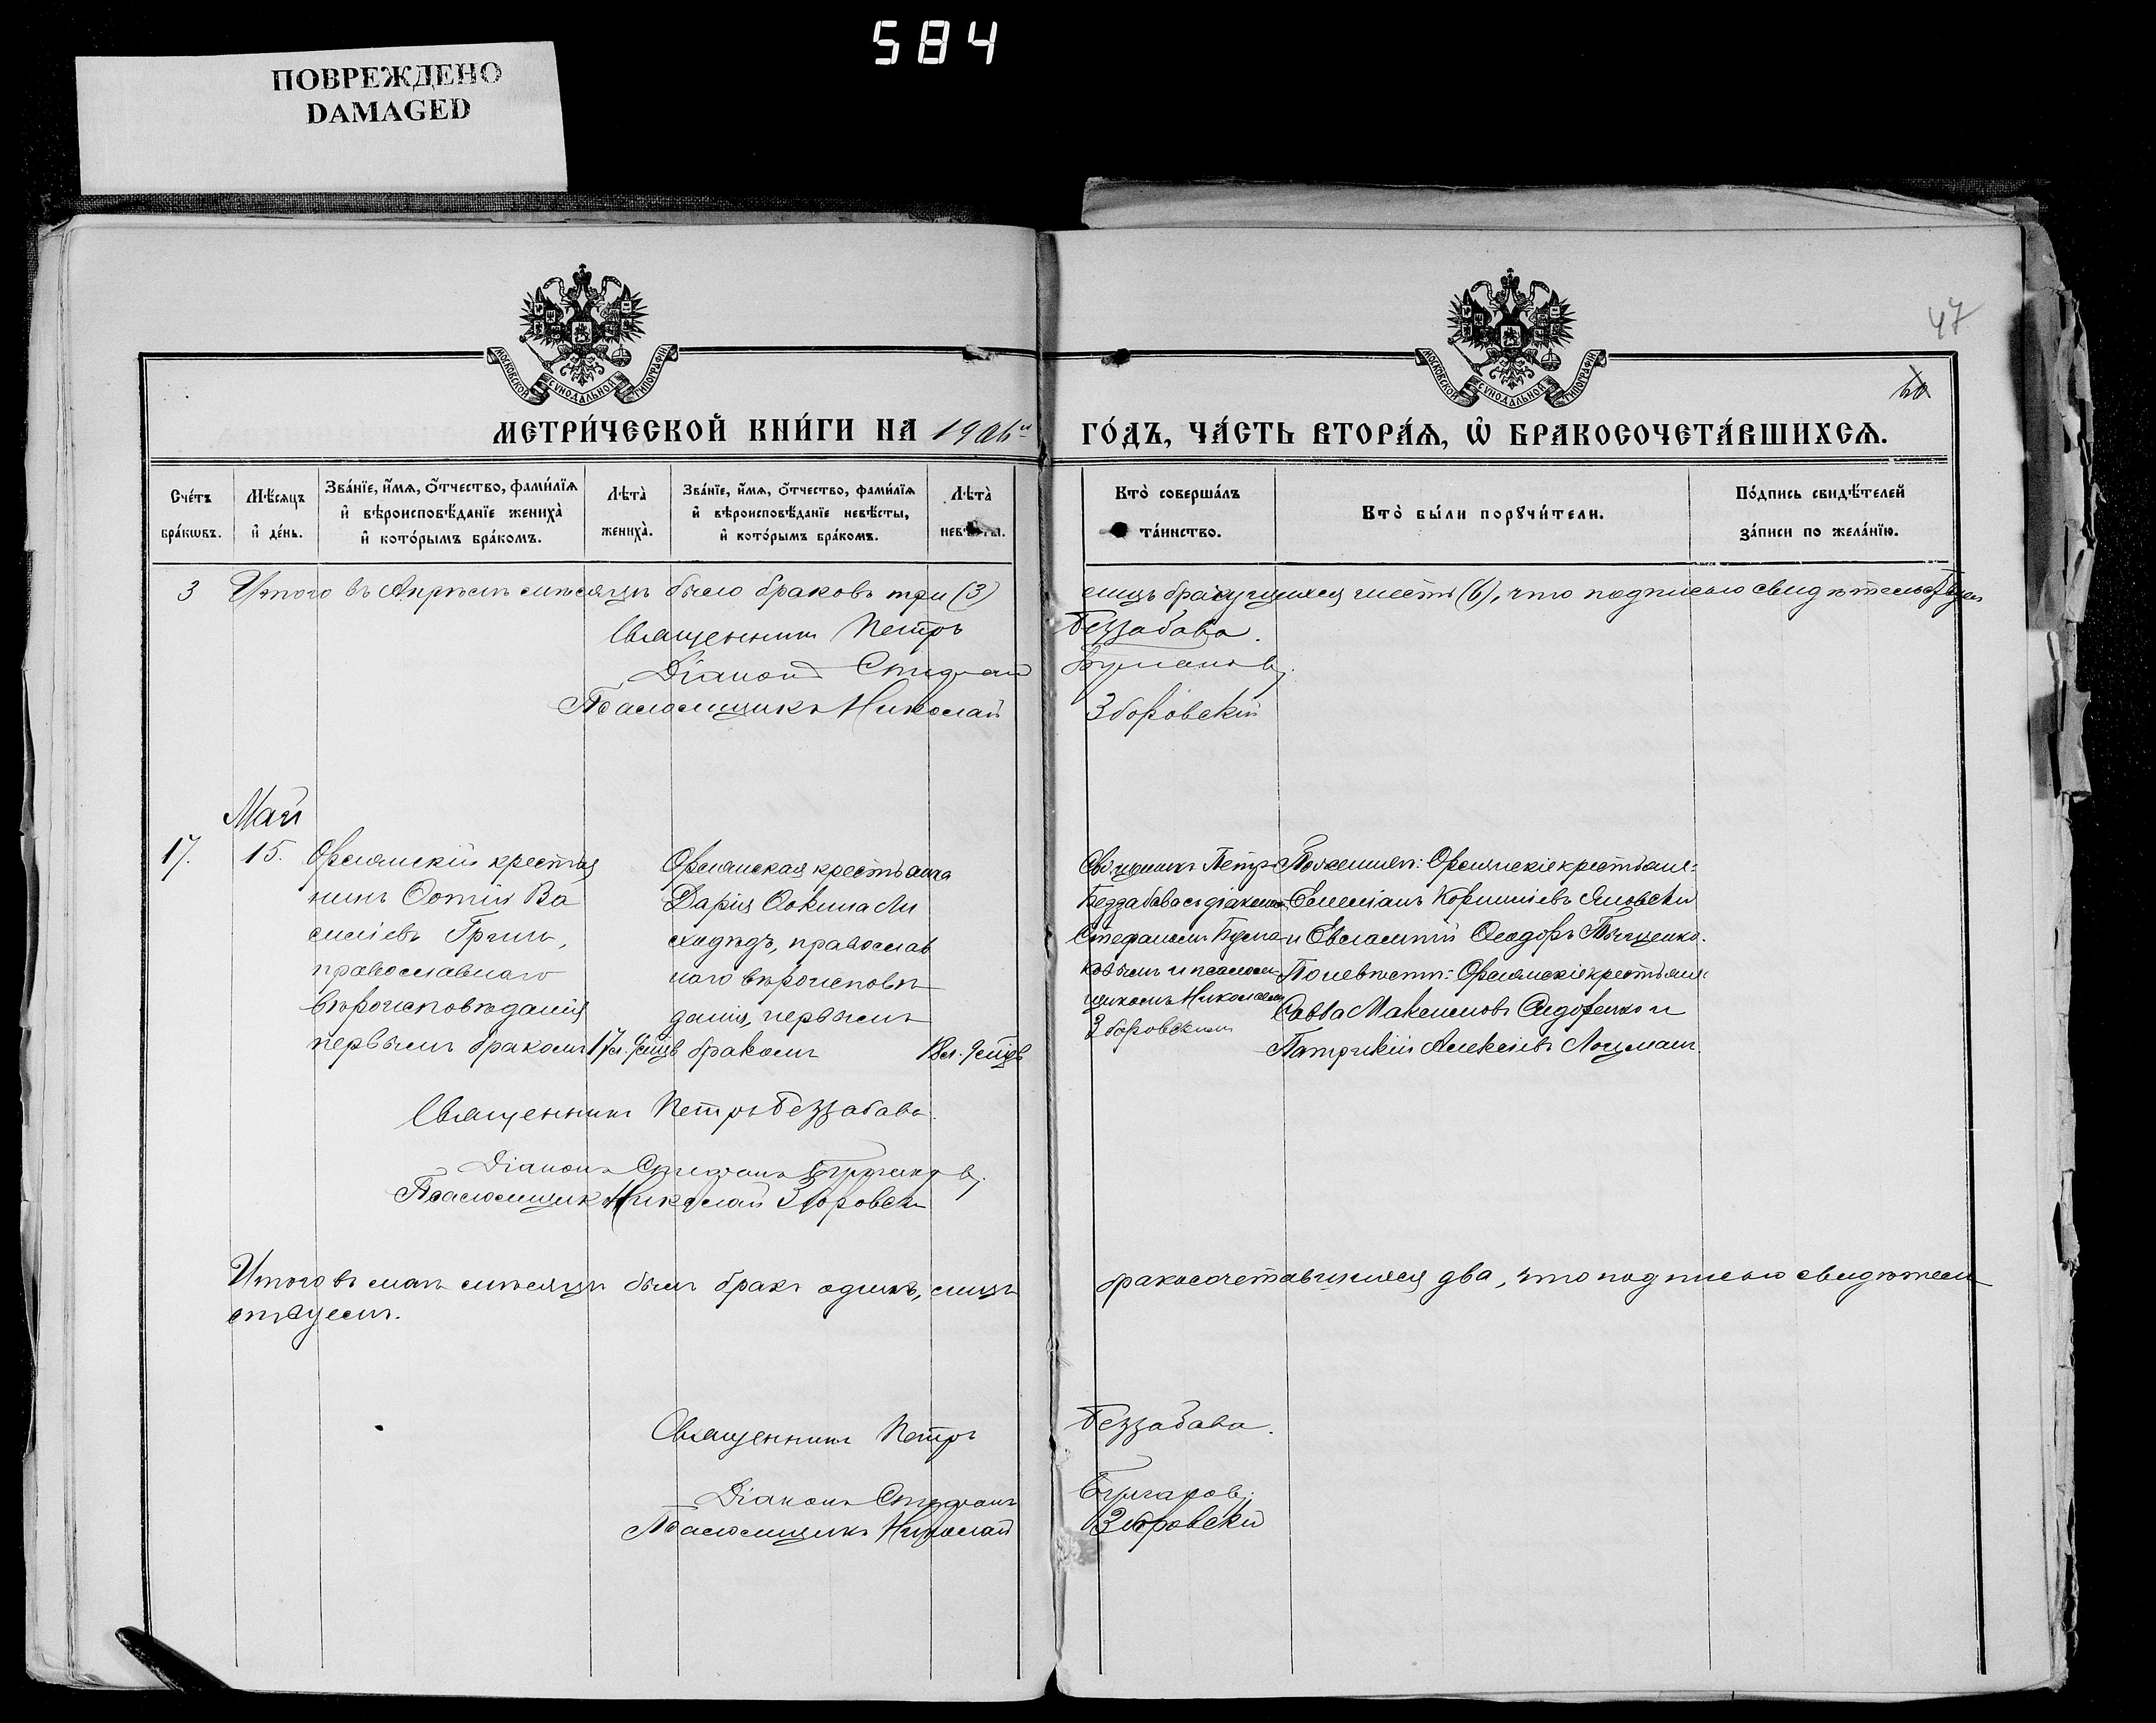 584
ПОВРЕЖДЕНО
DAMAGED
47
МОСКОВСКОЙ СУНОДАЛЬНОЙ ТИПОГРАФІИ
МОСКОВСКОЙ СУНОДАЛЬНОЙ ТИПОГРАФІИ
МЕТРИ́ЧЕСКОЙ КНИ́ГИ НА 1906й ГО́ДЪ, ЧА́СТЬ ВТОРА́Я, Ѽ БРАКОСОЧЕТА́ВШИХСЯ.
Сче́тъ
бра́кωвъ.
Мѣ́сяцъ
и҆ де́нь.
Зва́нїе, и҆́мя, ѻ҆́тчество, фами́лїя
и҆ вѣроисповѣ́данїе жениха̀
и҆ кото́рымъ бра́комъ.
Лѣта̀
жениха̀.
Зва́нїе, и҆́мя, ѻ҆́тчество, фами́лїя
и҆ вѣроисповѣ́данїе невѣ́сты,
и҆ кото́рымъ бра́комъ.
Лѣта̀
невѣ́сты.
Кто̀ соверша́лъ
та́инство.
Кто̀ бы́ли порꙋчи́тели.
По́дпись свидѣ́телей
за́писи по жела́нїю.
3 Итого въ Апрѣлѣ мѣсяцѣ было браковъ три (3) лицъ шесть (6), что подписью свидѣтельствуемъ
Священникъ Петръ Беззабава.
Діаконъ Стефанъ
Псаломщикъ Николай Зборовскій
Май
17. 15.
крестья
нинъ Фотій Ва
силіевъ Гринь,
православнаго
вѣроисповѣданія
первымъ бракомъ
17 л.
крестьянка
Дарія Фокина Ли
ходѣдъ, православ
наго вѣроисповѣ
данія, первымъ
бракомъ
18 л.
Священникъ Петръ
Беззабава съ діакономъ
Стефаномъ
и псалом
щикомъ Николаемъ
Зборовскимъ
По женихѣ: крестьяне:
Емеліанъ Корниліевъ Яновскій
и Евлампій Ѳеодоръ
По невѣстѣ: крестьяне:
Савва Максимовъ Сидоренко и
Патрикій Алексіевъ Лоцманъ.
Священникъ Петръ Беззабава.
Діаконъ Стефанъ
Псаломщикъ Николай Зборовскій
Итого въ маѣ мѣсяцѣ былъ бракъ одинъ, лицъ бракосочетавшихся два, что подписью свидѣтель
ствуемъ.
Священникъ Петръ Беззабава.
Діаконъ Стефанъ
Псаломщикъ Николай Зборовскій